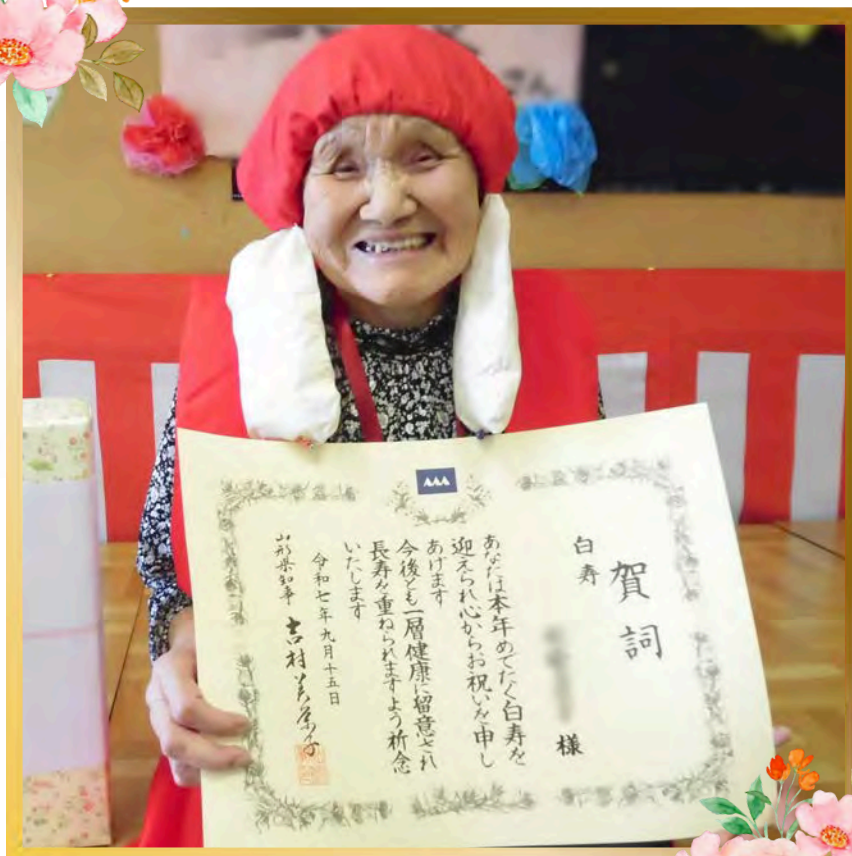 賀詞
白寿
様
あなたは本年めでたく白寿を
迎えられ心からお祝いを申し
あげます
今後とも一層健康に留意され
長寿を重ねられますよう祈念
いたします
令和七年九月十五日
山形県知事 吉村美栄子